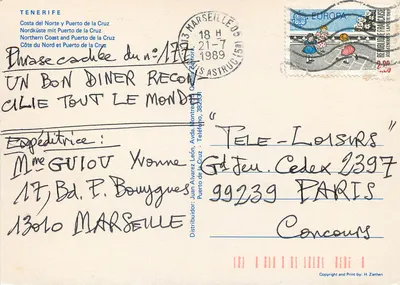 TENERIFE
Costa del Norte y Puerto de la Cruz
Nordküste mit Puerto de la Cruz
Northern Coast and Puerto de la Cruz
Côte du Nord et Puerto de la Cruz
Phrase cachée du n° 177
UN BON DINER RECON
CILIE TOUT LE MONDE
Expéditrice :
Mme GUIOU Yvonne
17, Bd. F. Bouygues
13010 MARSEILLE
Distribuidor: Juan Alvarez León, Avda.
Puerto de la Cruz - Teléfono,
13 MARSEILLE 05
18 H
21-7
1989
EUROPA
2,20
"TELE-LOISIRS"
Gd Jeu. Cedex 2397
99239 PARIS
Concours
Copyright and Print by: H.